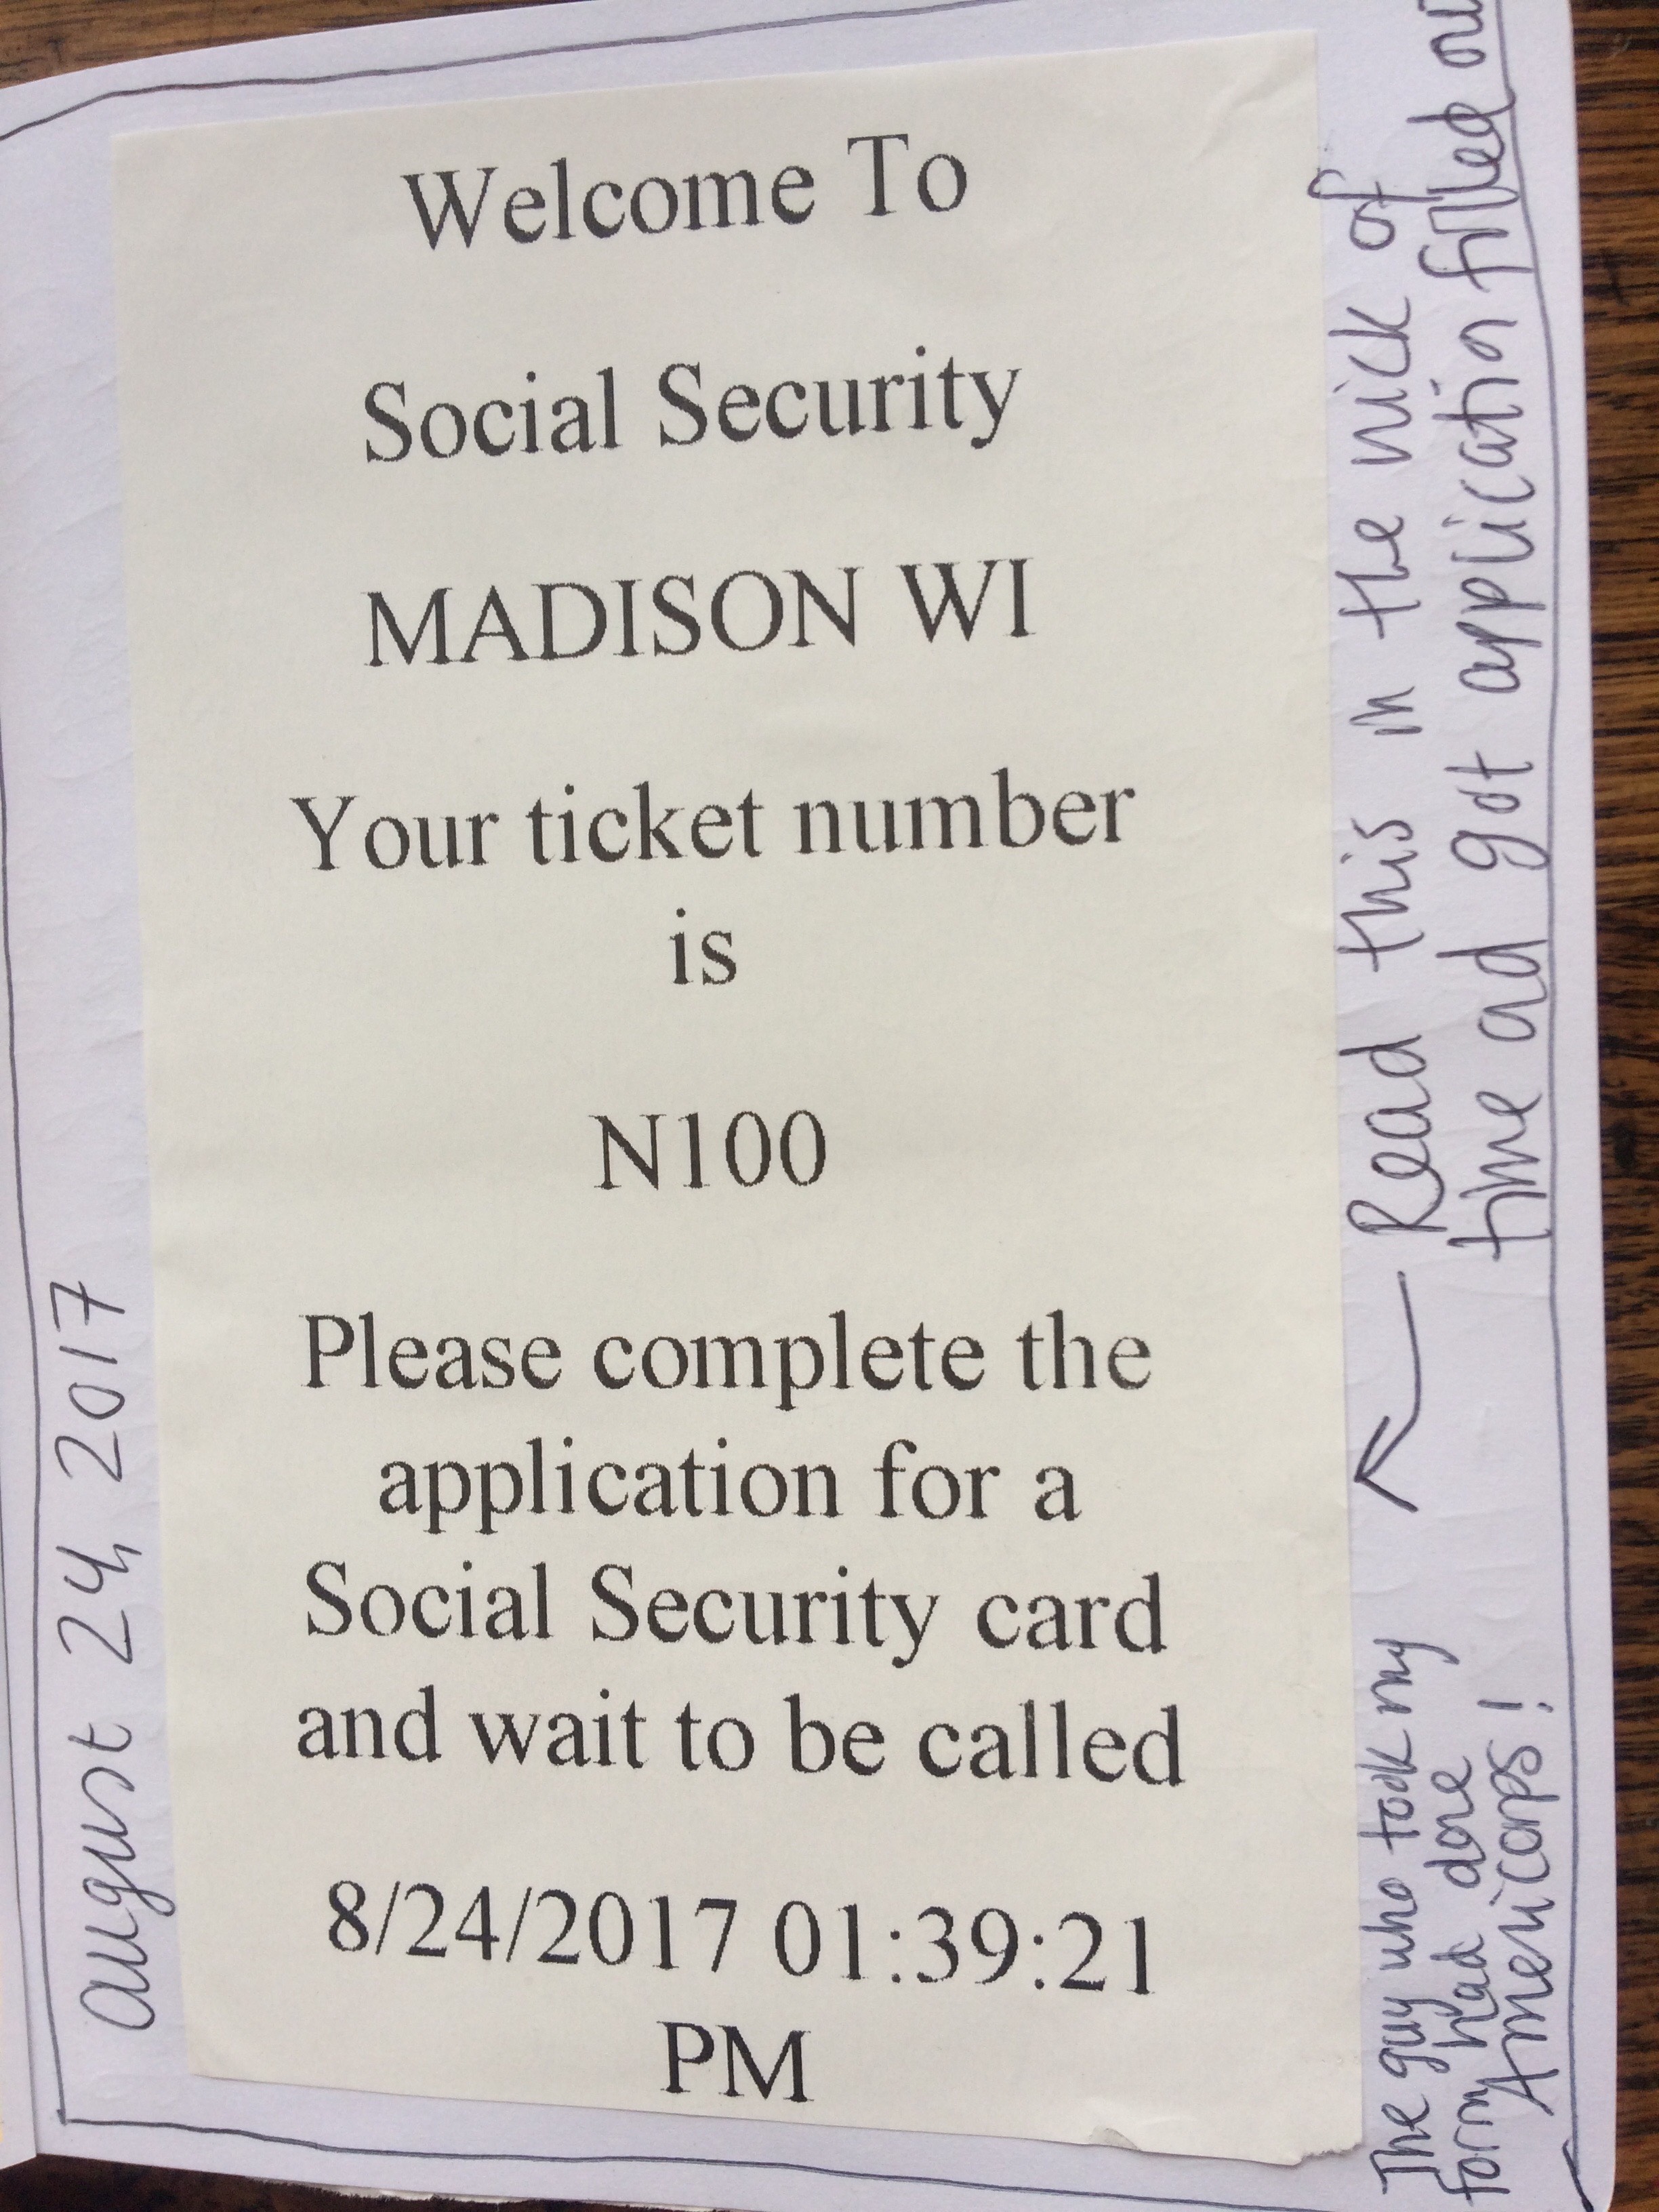 Welcome To
Social Security
MADISON WI
Your ticket number
is
N100
Please complete the
application for a
Social Security card
and wait to be called
8/24/2017 01:39:21
PM
august 24, 2017
Read this in the nick of
time and got application filled out
The guy who took my
form had done
Americorps!